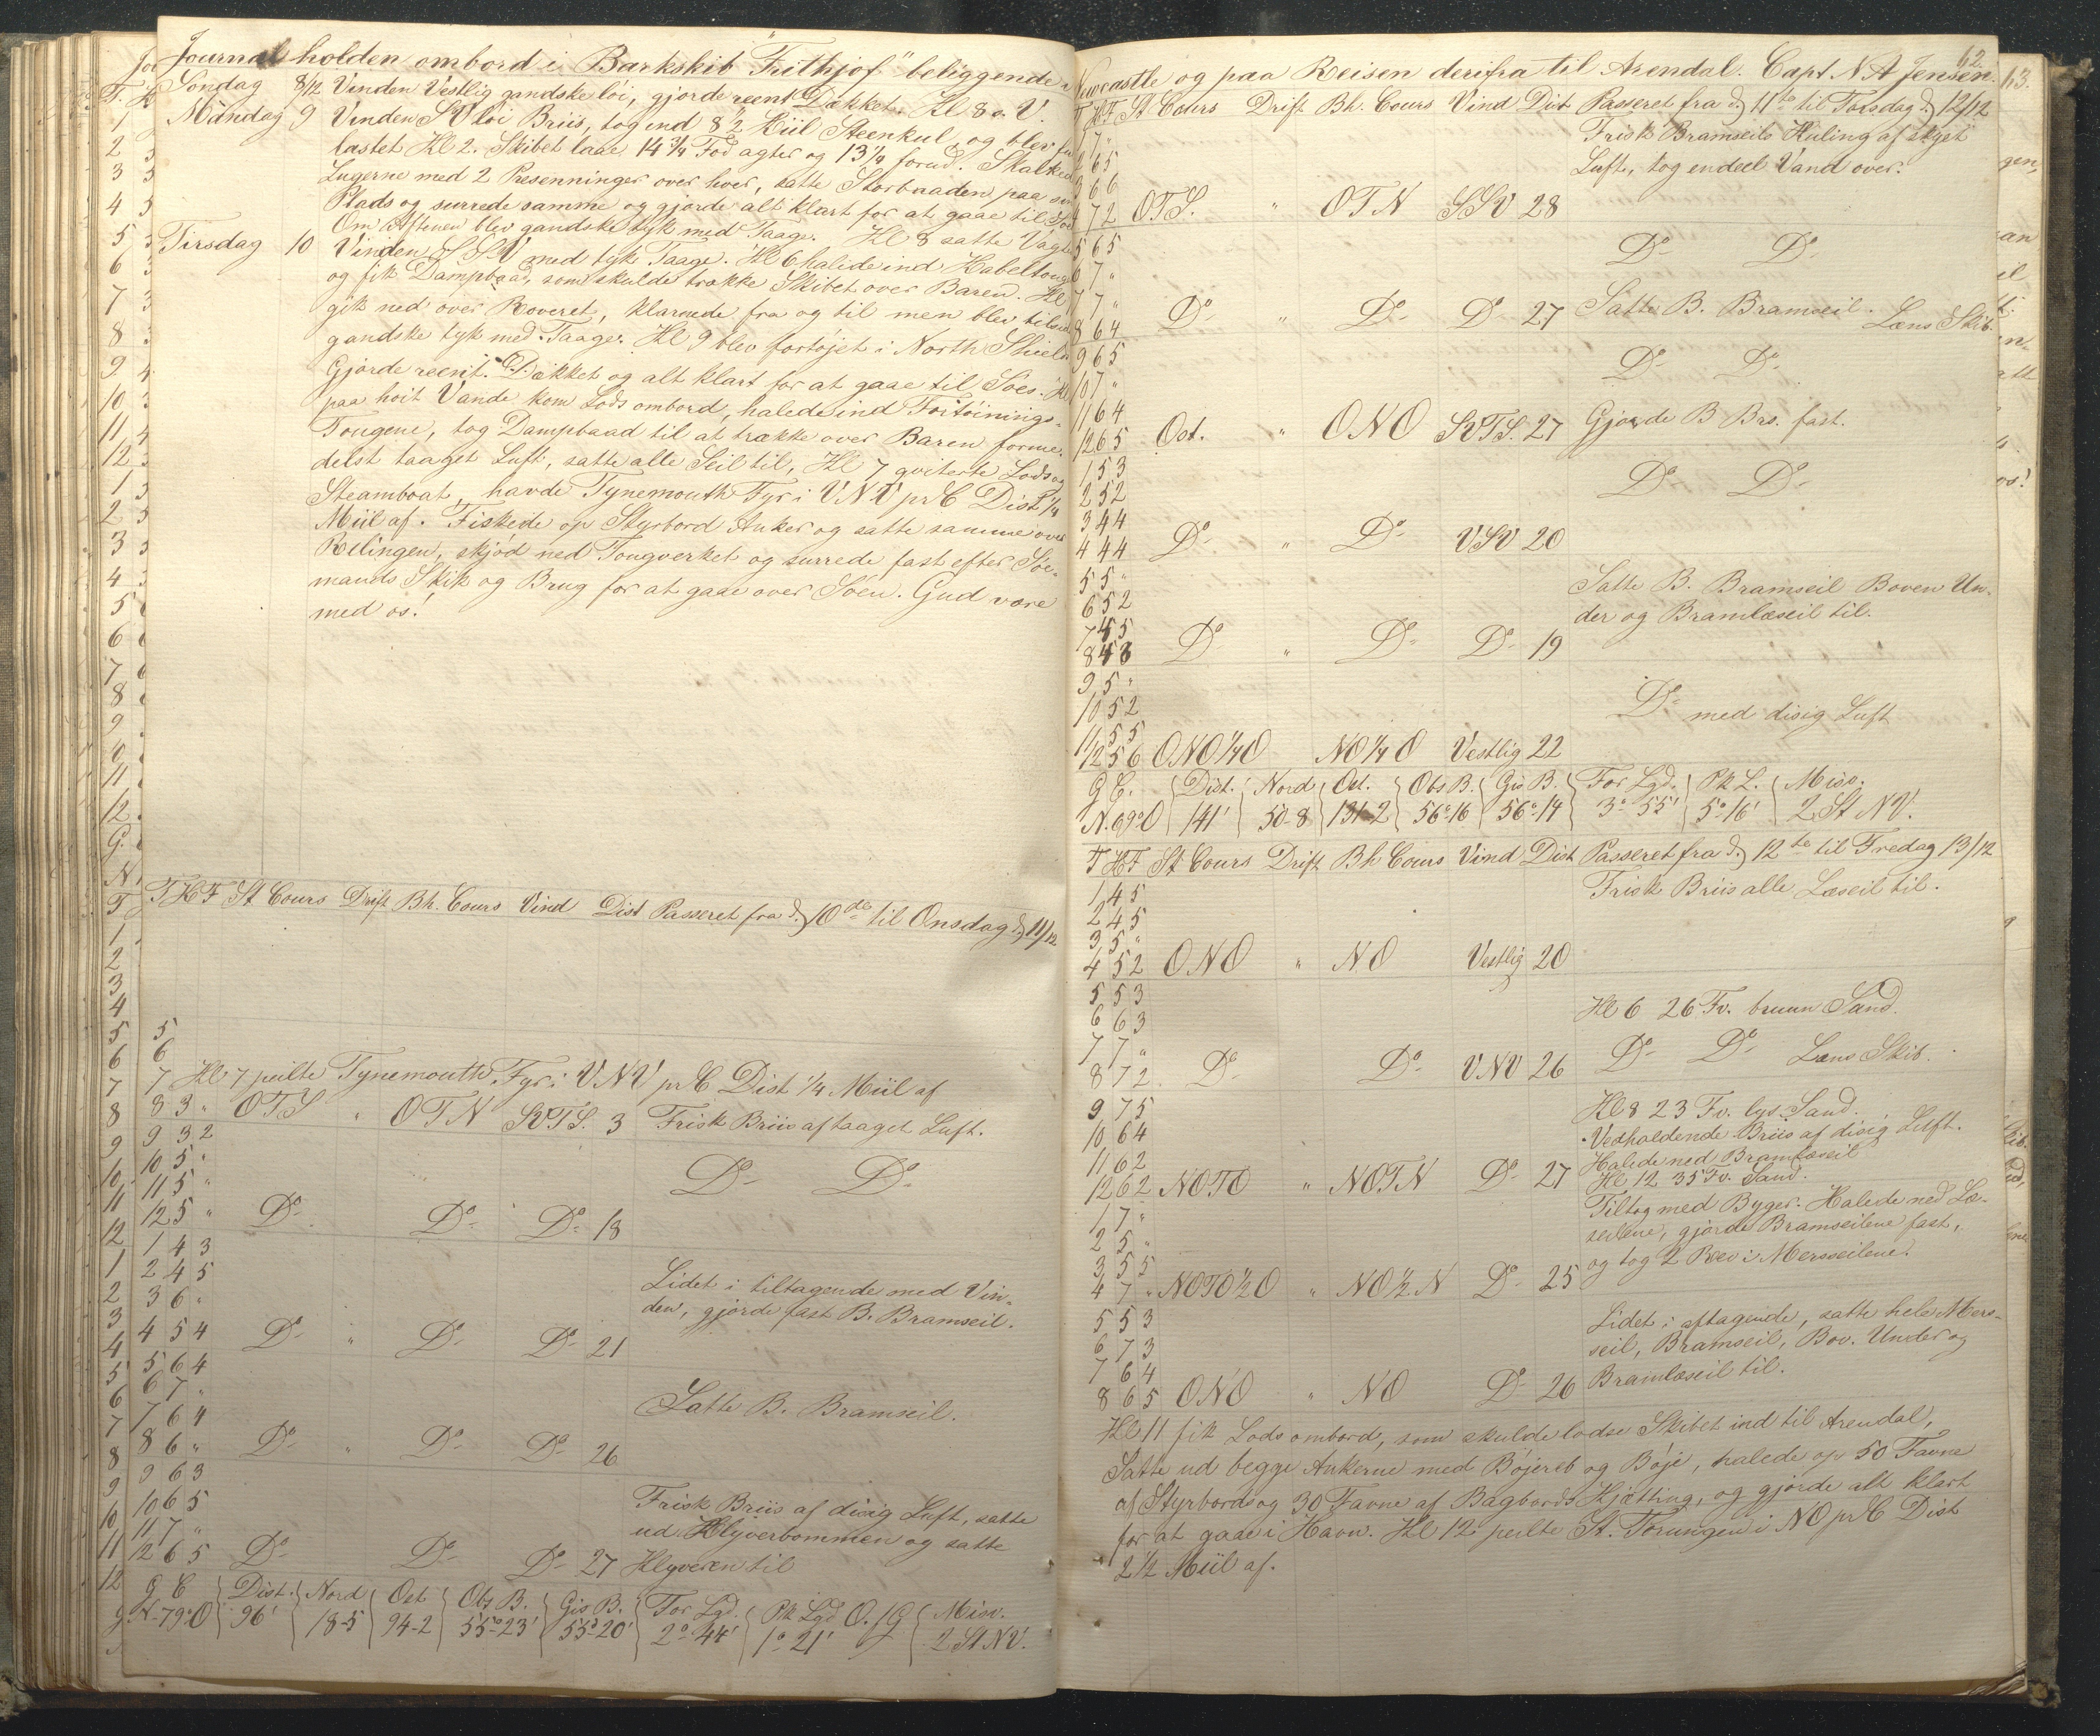 Journal holden ombord i Barkskib "Frithjof" beliggende i
Söndag 8/12 Vinden Vestlig gandske löi, gjorde reent Dækket. Kl 8 a V.
Mandag 9 Vinden SV löi Briis, tog ind 82 Kiil Steenkul, og blev
lastet Kl 2. Skibet laae 14 3/4 Fod agter og 13 1/4 forud. Skalked
Lugerne med 2 Presenninger over hver, satte Storbaaden paa sin
Plads og surrede samme og gjorde alt klart for at gaae til Söe
Om Aftenen blev gandske tyk med Taage. Kl 8 satte Vagt
Tirsdag 10 Vinden SSV med tyk Taage. Kl 6 halede ind Kabeltoug
og fik Dampbaad, som skulde trække Skibet over Baren. Kl
gik ned over Reveret, klarnede fra og til men blev tilsidst
gandske tyk med Taage. Kl 9 blev fortøjet i North Shields
Gjorde reent Dækket og alt klart for at gaae til Söes. Kl
paa höit Vande kom Lods ombord, halede ind Fortöinings-
Tougene, tog Dampbaad til at trække over Baren forme-
delst taaget Luft, satte alle Seil til, Kl 7 qviterte Lods og
Steamboat, havde Tynemouth Fyr i VNV pr C Dist 1/4
Miil af. Fiskede op Styrbord Anker og satte samme over
Relingen, skjöd ned Tougverket og surrede fast efter Söe-
mands Skik og Brug for at gaae over Söen. Gud være
med os!
T K F St Cours Drift Bh. Cours Vind Dist Passeret fra d. 10de til Onsdag d. 11/12
5
6
7 Kl 7 peilte Tynemouth Fyr i VNV pr C Dist 1/4 Miil af
8 3 " OTS " OTN SVTS. 3 Frisk Briis af taaget Luft.
9 3 2
10 5 " Do Do
11 5 "
12 5 " Do Do Do 18
1 4 3
2 4 5 Lidet i tiltagende med Vin-
3 6 " den, gjorde fast B. Bramseil.
4 5 4 Do " Do Do 21
5 6 4
6 7 " Satte B. Bramseil.
7 6 4
8 6 " Do " Do Do 26
9 6 3
10 6 5 Frisk Briis af disig Luft, satte
11 7 " ud Klyverbommen og satte
12 6 5 Do Do Do 27 Klyveren til
G C Dist. Nord Ost Obs B. Gis B. For Lgd. Pk Lgd O. f G Misv.
N 79° O 96' 18-5 94-2 55°-23' 55°-20' 2°-44' 1° 21' 2 St NV.
Newcastle og paa Reisen derifra til Arendal. Capt N A Jensen. 62.
T K F St Cours Drift Bh. Cours Vind Dist Passeret fra d. 11te til Torsdag d. 12/12
1 7 " Frisk Bramseils Kuling af skyet
2 6 5 Luft, tog endeel Vand over.
3 6 6
4 7 2 OTS. " OTN SSV 28
5 6 5 Do Do
6 7 "
7 7 " Satte B. Bramseil.
8 6 4 Do " Do Do 27 Læns Skib.
9 6 5 Do Do
10 7 "
11 6 4 Gjorde B Brs. fast.
12 6 5 Ost. " ONO SVTS. 27
1 5 3 Do Do
2 5 2
3 4 4
4 4 4 Do " Do VSV 20
5 5 " Satte B. Bramseil Boven Un-
6 5 2 der og Bramlæseil til.
7 4 5
8 4 3 Do " Do Do 19
9 5 "
10 5 2 Do med disig Luft
11 5 5
12 5 6 ONO 1/4 O NO 1/4 O Vestlig 22
G C. Dist. Nord Ost. Obs B. Gis B. For Lgd. Pk L. Misv.
N. 69° O 141' 50-8 131-2 56°-16 56°-14 3° 55' 5° 16' 2 St NV.
T K F St Cours Drift Bh Cours Vind Dist Passeret fra d. 12te til Fredag 13/12
1 4 5 Frisk Briis alle Læseil til.
2 4 5
3 5 "
4 5 2 ONO " NO Vestlig 20
5 5 3 Kl 6 26 Fv. bruun Sand.
6 6 3
7 7 " Do Do Læns Skib.
8 7 2 Do Do VNV 26
Kl 8 23 Fv. lys Sand.
9 7 5 Vedholdende Briis af disig Luft.
10 6 4 Halede ned Bramlæseil
11 6 2 Kl 12 35 Fv. Sand.
12 6 2 NOTO " NOTN Do 27
1 7 " Tiltog med Byger. Halede ned Læ-
2 5 " seilene, gjorde Bramseilene fast,
3 5 5 og tog 2 Rev i Mersseilene.
4 7 " NOTO 1/2 O " NO 1/2 N Do 25
5 5 3 Lidet i aftagende, satte hele Mers-
6 7 3 seil, Bramseil, Bov. Under og
7 6 4 Bramlæseil til.
8 6 5 ONO " NO Do 26
Kl 11 fik Lods ombord, som skulde lodse Skibet ind til Arendal,
Satte ud begge Ankerne med Böjereb og Böje, halede op 50 Favne
af Styrbords og 30 Favne af Bagbords Kjætting, og gjorde alt klart
for at gaae i Havn. Kl 12 peilte St. Torungen i NO pr C Dist
2 1/2 Miil af.